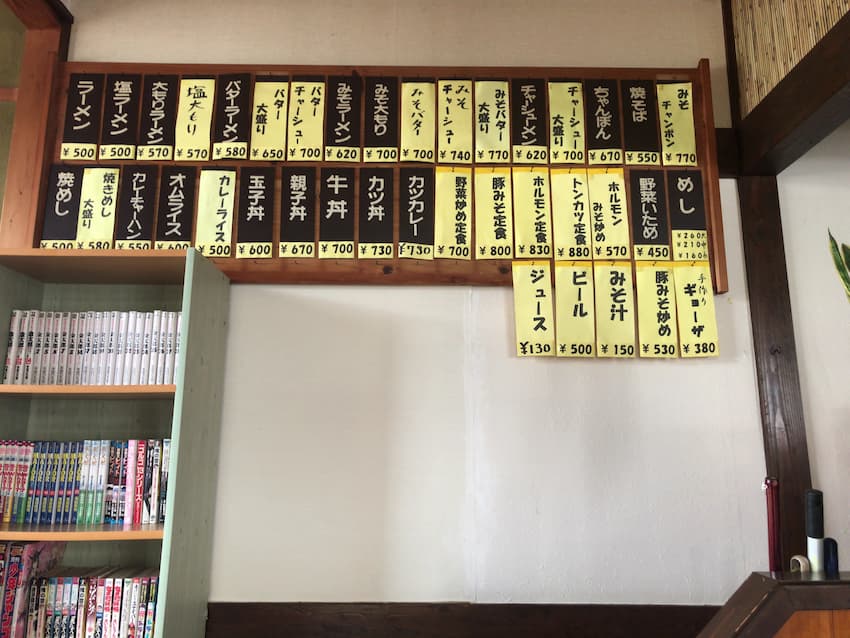 ラーメン
¥500
塩ラーメン
¥500
大もりラーメン
¥570
塩大もり
¥570
バターラーメン
¥580
バター
大盛り
¥650
バター
チャーシュー
¥700
みそラーメン
¥620
みそ大もり
¥700
みそバター
¥700
みそ
チャーシュー
¥740
みそバター
大盛り
¥770
チャーシューメン
¥620
チャーシュー
大盛り
¥700
ちゃんぽん
¥670
焼そば
¥550
みそ
チャンポン
¥770
焼めし
¥500
焼きめし
大盛り
¥580
カレーチャーハン
¥550
オムライス
¥600
カレーライス
¥500
玉子丼
¥600
親子丼
¥670
牛丼
¥700
カツ丼
¥730
カツカレー
¥730
野菜炒め定食
¥700
豚みそ定食
¥800
ホルモン定食
¥830
トンカツ定食
¥880
ホルモン
みそ炒め
¥570
野菜いため
¥450
めし
¥260大
¥210中
¥160小
ジュース
¥130
ビール
¥500
みそ汁
¥150
豚みそ炒め
¥530
手作り
ギョーザ
¥380